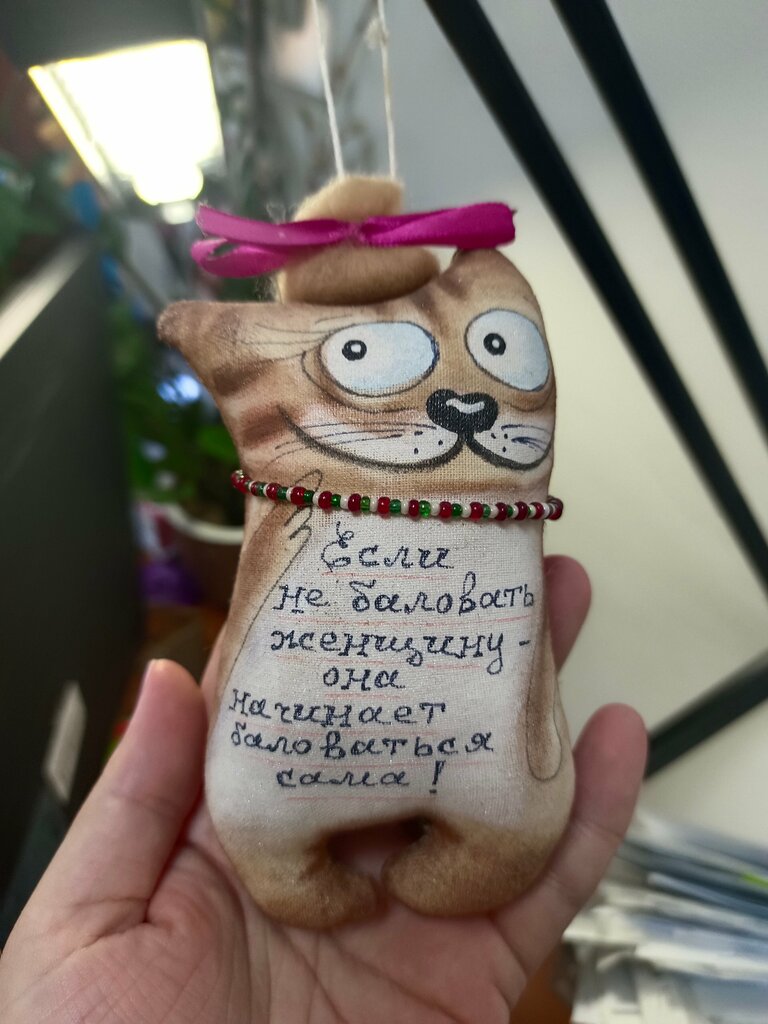 Если
не баловать
женщину -
она
начинает
баловаться
сама!